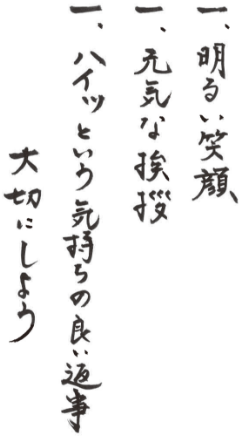 一、明るい笑顔
一、元気な挨拶
一、ハイッという気持ちの良い返事
大切にしよう